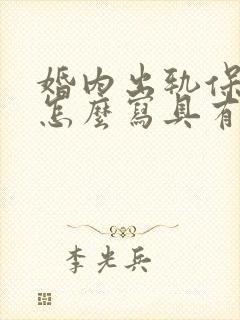 婚内出轨保
怎麼寫具有
李光兵